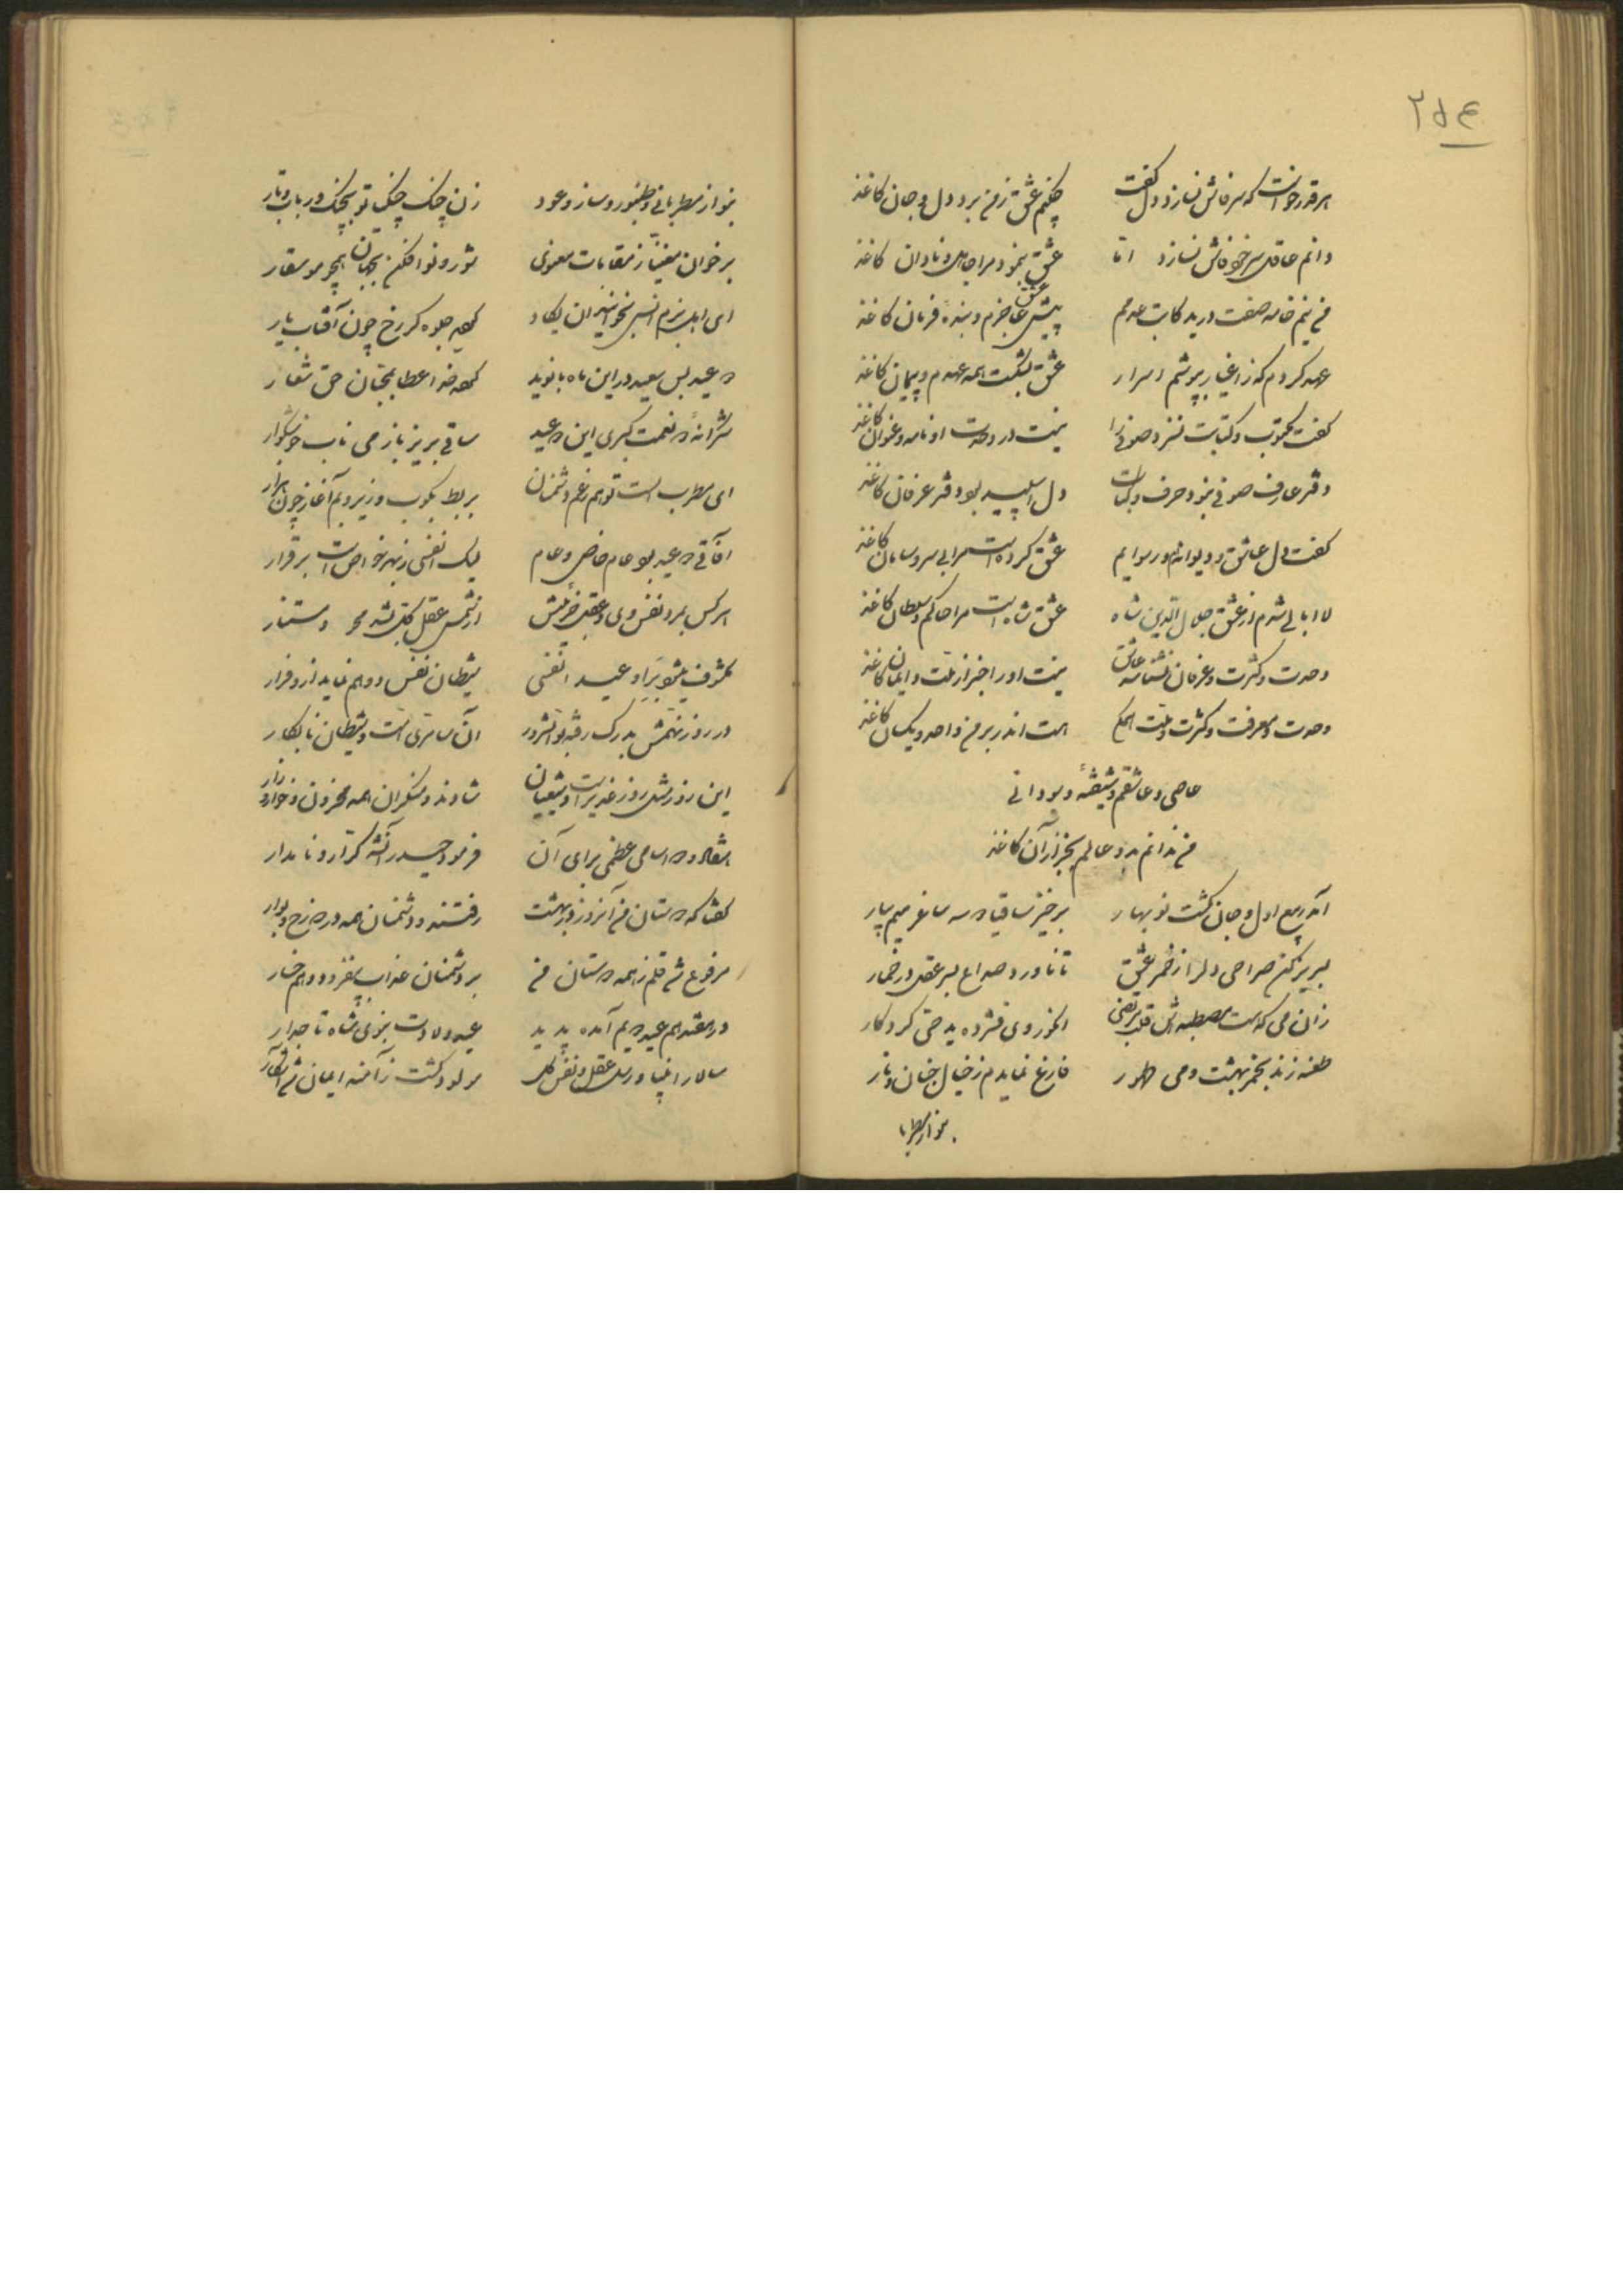 ۲۵۴
هر قدر خواست که سر فاش نسازد دل گفت چکنم عشق زمن برد دل و جان کاغذ
دانم عاقل سر خود فاش نسازد اما عشق بنمود مرا جاهل و نادان کاغذ
من نیم خامه صفت در ید کاتب عدمم پیش عشق عاجزم و بنده فرمان کاغذ
عهد کردم که ز اغیار بپوشم اسرار عشق بشکست همه عهدم و پیمان کاغذ
گفت مکتوب و کتابت نسزد صوفی را نیست در وحدت او نامه و عنوان کاغذ
دفتر عارف صوفی نبود حرف و کتاب دل اسپید بود دفتر عرفان کاغذ
گفت دل عاشق و دیوانه و رسوایم عشق کرده است مرا بی سر و سامان کاغذ
لاابالی شدم از عشق جلال الدین شاه عشق شاه است مرا حاکم و سلطان کاغذ
وحدت و کثرت و عرفان نشناسد عاشق نیست او را خبر از ملت و ایمان کاغذ
وحدت و معرفت و کثرت و ملت همگی هست اندر بر من واحد و یکسان کاغذ
عاصی و عاشقم و شیفته و سودائی
من ندانم بدو عالم بجز از آن کاغذ
آمد ربیع اول و جان گشت نوبهار برخیز ساقیا ده سه ساغر میم بیار
لبریز کن صراحی دلرا ز خمر عشق تا ناورد صداع بسر عقل در خمار
زان می که هست مصطبه اش قلب مرتضی انگور وی فشرده ید حق کردگار
طعنه زند بخمر بهشت و می طهور فارغ نمایدم ز خیال جنان و نار
بنواز مطربا
بنواز مطربا نی و طنبور و ساز و عود زن چنگ چنگ تو بچنگ و رباب و تار
برخوان مغنیا ز مقامات معنوی شور و نوا فکن بجهان همچو موسقار
ای اهل بزم انس بخوانید ان یکاد جلوه کرد رخ چون آفتاب یار
ده عید بس سعید در این ماه با نوید خدا عطا بمحبان حق شعار
شکرانه نعمت کبری این ده عید ساقی بریز باز می ناب خوشگوار
ای مطرب الست تو هم رغم دشمنان بربط بکوب و زیر و بم آغاز چون هزار
آفاقی ده عید بود عام خاص و عام لیک انفسی ز بهر خواص است برقرار
هر کس بمرد نفس وی و عقل جزئیش از شمس عقل کل شد محو و مستنار
مکشوف میشود بر او عید انفسی شیطان نفس و وهم نماید از او فرار
در روز نهمش بدرک رفته آن سامری امت و شیطان نابکار
این روز مثل روز غدیر است و شیعیان شادند و منکران همه محزون و خوار و زار
هفتاد و دو اسامی عظمی برای آن فرمود حیدر آنشه کرار و نامدار
گفتا که دوستان من آنروز در بهشت رفتند و دشمنان همه در دوزخ و بوار
مرفوع شد قلم ز همه دوستان من بر دشمنان عذاب بیفزود و هم خسار
در هفدهم عید دیم آمده پدید عید ولادت نبوی شاه تاجدار
سالار انبیا و رسل عقل و نفس کل مولود گشت ز آمنه ایمان شد آشکار